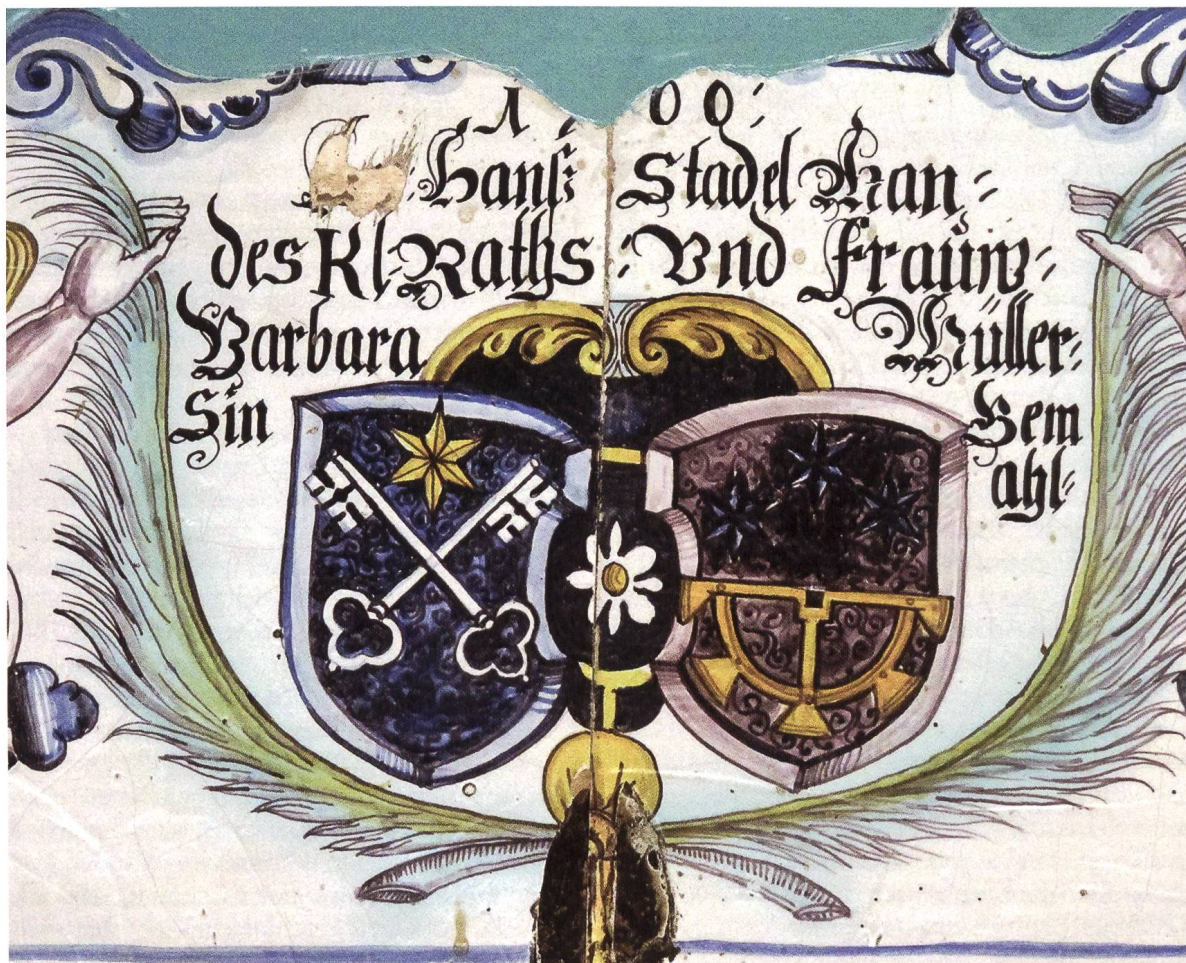 1 00:
Hanß Stadel Man:
des Kl: Raths: Vnd Frauw:
Barbara Müller:
Sin Gem
ahl: